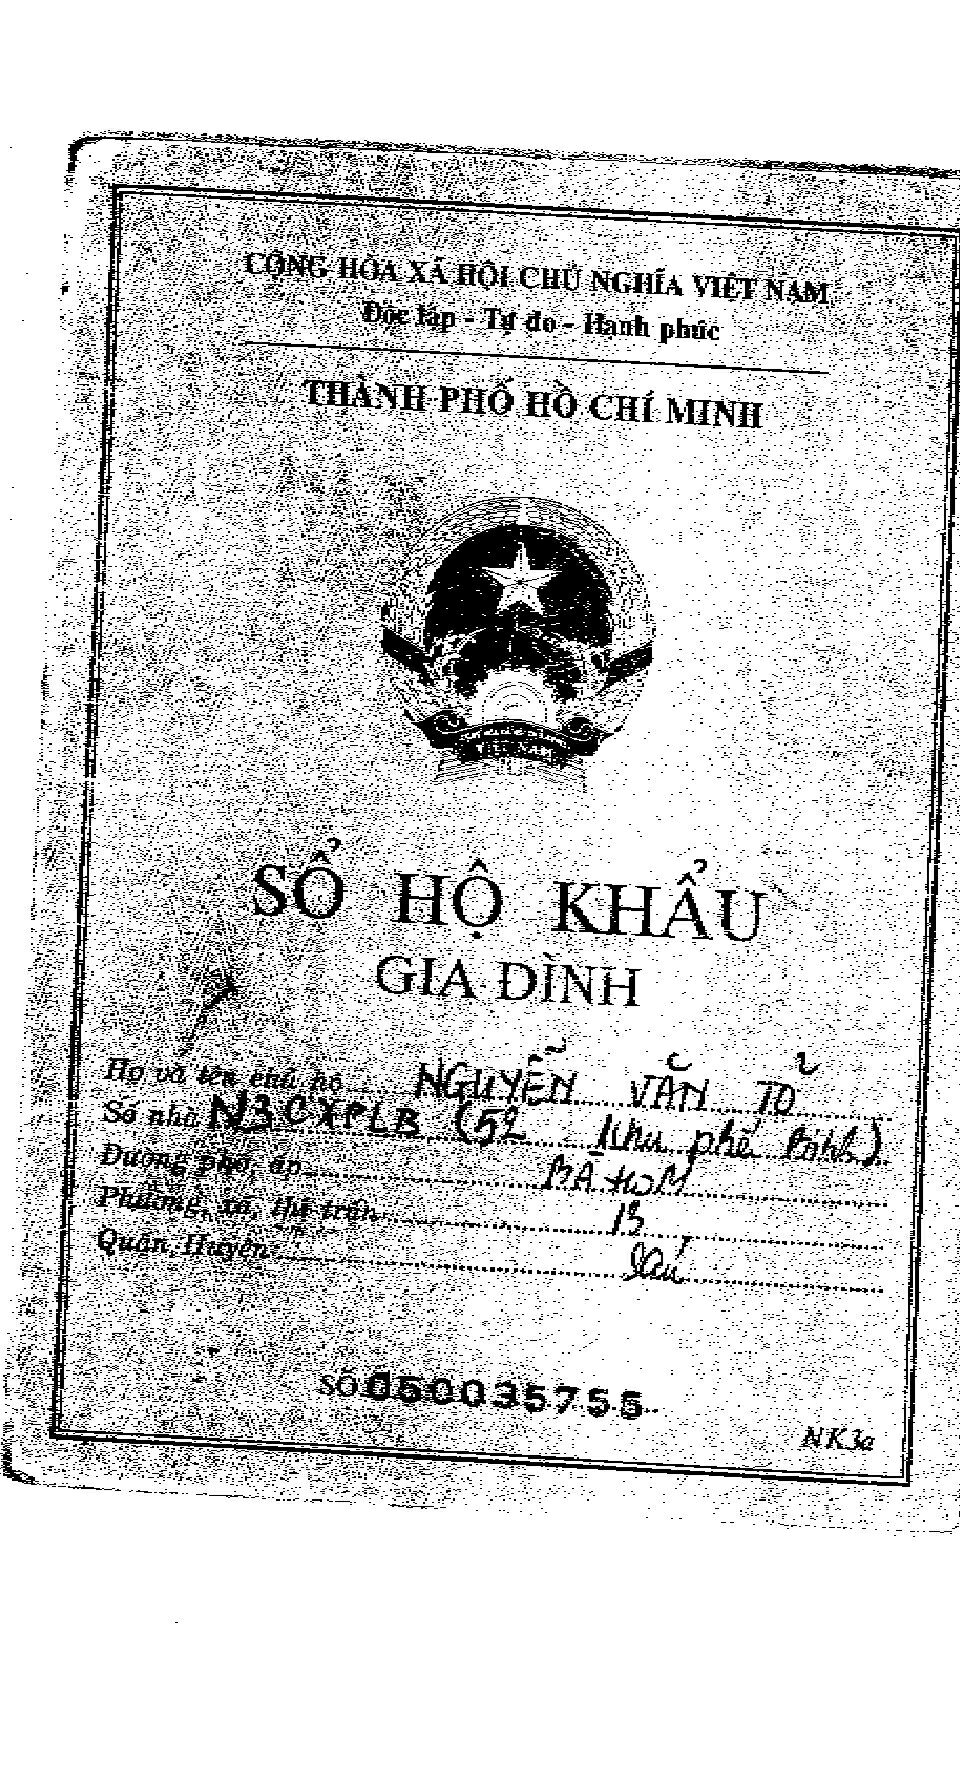 CỘNG HÒA XÃ HỘI CHỦ NGHĨA VIỆT NAM
Độc lập - Tự do - Hạnh phúc
THÀNH PHỐ HỒ CHÍ MINH
SỔ HỘ KHẨU
GIA ĐÌNH
Họ và tên chủ hộ NGUYỄN VĂN TỎ
Số nhà N3 CXPLB (52 khu phố
Đường phố, ấp BÀ HOM
Phường, xã, thị trấn 13
Quận, Huyện Sáu
SỐ 050035755
NK3a